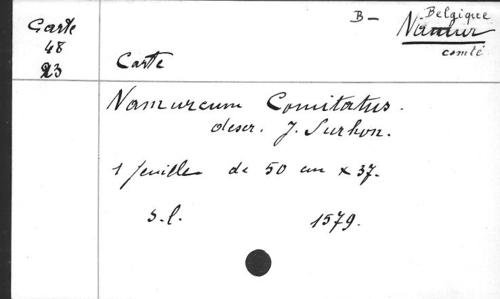 Carte
48
23
B - Belgique
Namur
comté
Carte
Namurcum Comitatus.
descr. J. Surhon.
1 feuille de 50 cm x 37.
s.l. 1579.